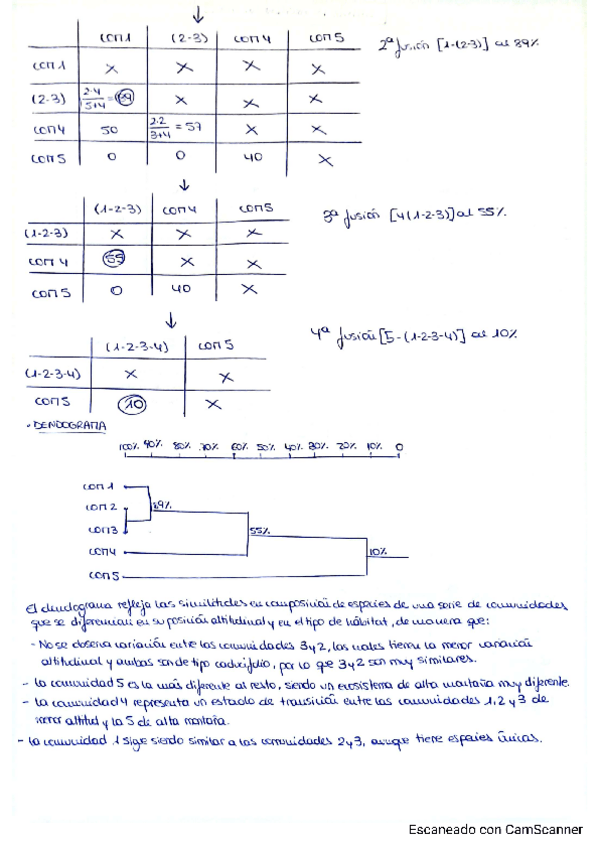 COM1 (2-3) COM4 COM5
2ª fusión [1-(2-3)] al 89%
COM1 X X X X
(2-3) 2·4/5+4 = 89 X X X
COM4 50 2·2/3+4 = 57 X X
COM5 0 0 40 X
(1-2-3) COM4 COM5
3ª fusión [4(1-2-3)] al 55%.
(1-2-3) X X X
COM4 55 X X
COM5 0 40 X
4ª fusión [5-(1-2-3-4)] al 10%
(1-2-3-4) COM5
(1-2-3-4) X X
COM5 10 X
· DENDOGRAMA
100% 90% 80% 70% 60% 50% 40% 30% 20% 10% 0
COM1
COM2 89%
COM3 55%
COM4 10%
COM5
El dendograma refleja las similitudes en composición de especies de una serie de comunidades
que se diferencian en su posición altitudinal y en el tipo de hábitat, de manera que:
- No se observa variación entre las comunidades 3 y 2, las cuales tienen la menor variación
altitudinal y ambas son de tipo caducifolio, por lo que 3 y 2 son muy similares.
- La comunidad 5 es la más diferente al resto, siendo un ecosistema de alta montaña muy diferente.
- La comunidad 4 representa un estado de transición entre las comunidades 1, 2 y 3 de
menor altitud y la 5 de alta montaña.
- La comunidad 1 sigue siendo similar a las comunidades 2 y 3, aunque tiene especies únicas.
Escaneado con CamScanner